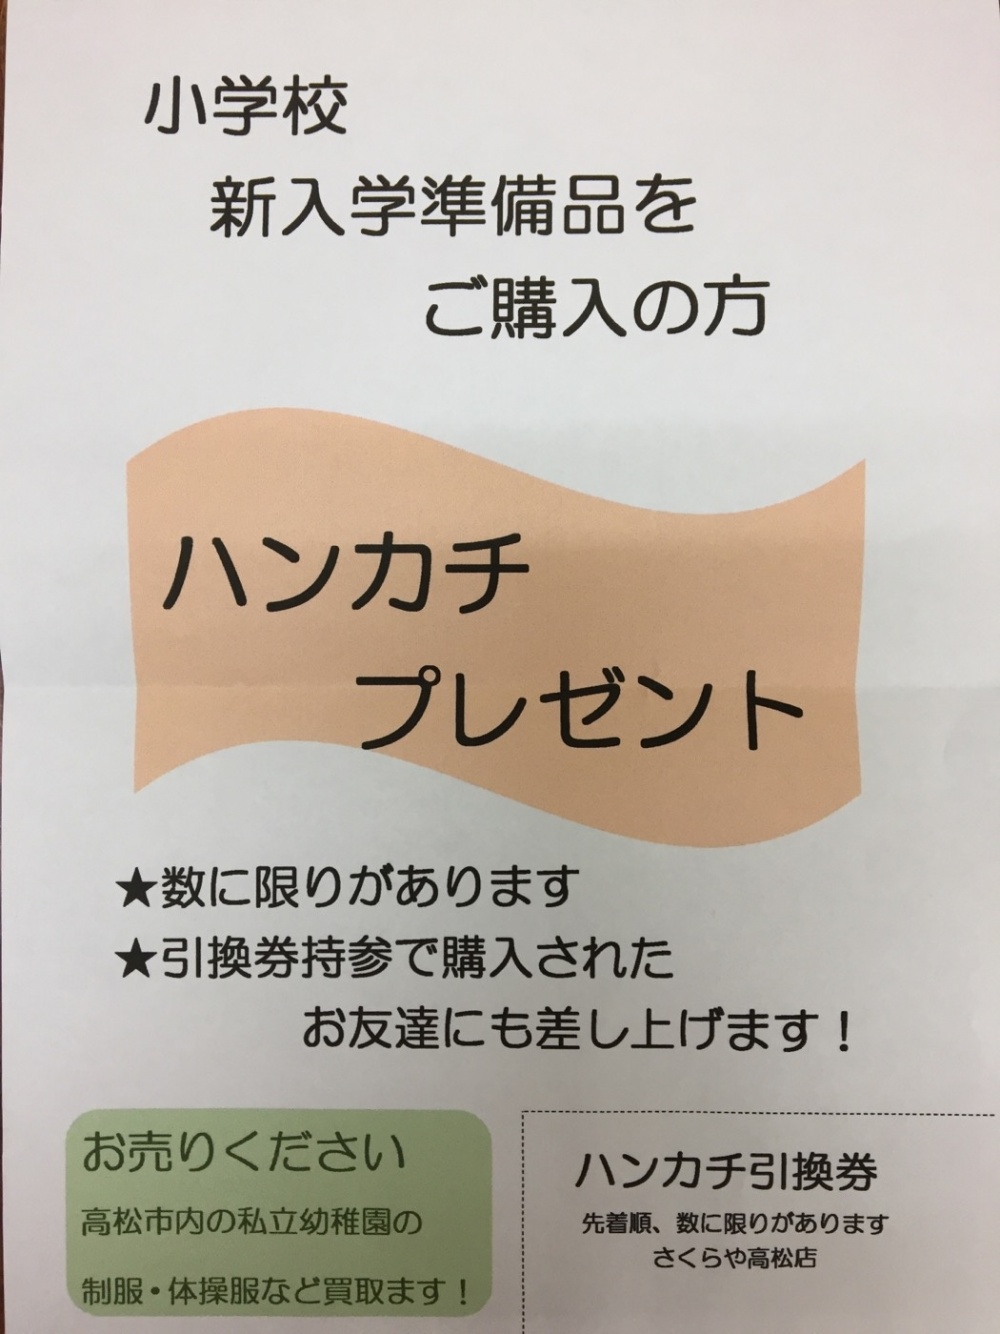 小学校
新入学準備品を
ご購入の方
ハンカチ
プレゼント
★数に限りがあります
★引換券持参で購入された
お友達にも差し上げます！
お売りください
高松市内の私立幼稚園の
制服・体操服など買取ます！
ハンカチ引換券
先着順、数に限りがあります
さくらや高松店